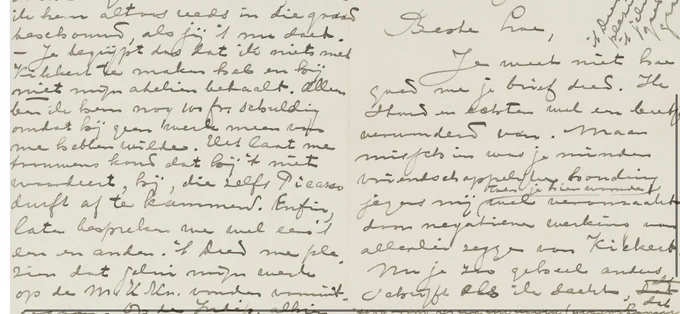 ik hem altoos reeds in die graad
beschouwd, als jij 't nu doet.
— Je begrijpt dus dat ik niets met
Kickert te maken heb en hij
niet mijn atelier betaalt. Alleen
ben ik hem nog 100 fr. schuldig
omdat hij geen werk meer van
me hebben wilde. Het laat me
trouwens koud dat hij 't niet
waardeert, hij, die zelfs Picasso
durft af te kammen. Enfin,
later bespreken we wel eens 't
een en ander. 't Deed me ple-
zier dat jelui mijn werk
op de M.K.Kr. vonden vooruit-
Beste Lou,
Je weet niet hoe
goed me je brief deed. Ik
stond er echter wel een beetje
verwonderd van. Maar
misschien was je minder
vriendschappelijke houding
toen je hier woonde
jegens mij, wel veroorzaakt
door negatieve werking van
allerlei zegge van Kickert.
Nu je zoo geheel anders
schrijft als ik dacht, dat